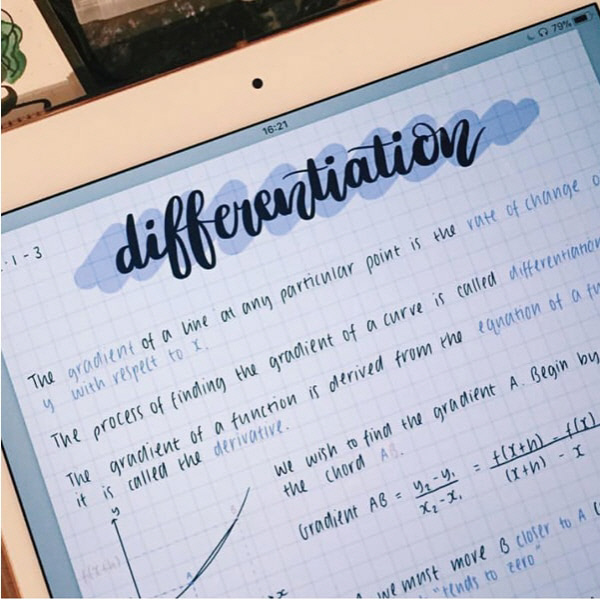 16:21
79%
differentiation
1-3
The gradient of a line at any particular point is the rate of change o
y with respect to x.
The process of finding the gradient of a curve is called differentiation
The gradient of a function is derived from the equation of a fu
it is called the derivative.
We wish to find the gradient A. Begin by
the chord AB.
Gradient AB = (y₂-y₁)/(x₂-x₁) = (f(x+h) - f(x))/((x+h) - x)
y
f(x+h)
B
A
A we must move B closer to A
"tends to zero"